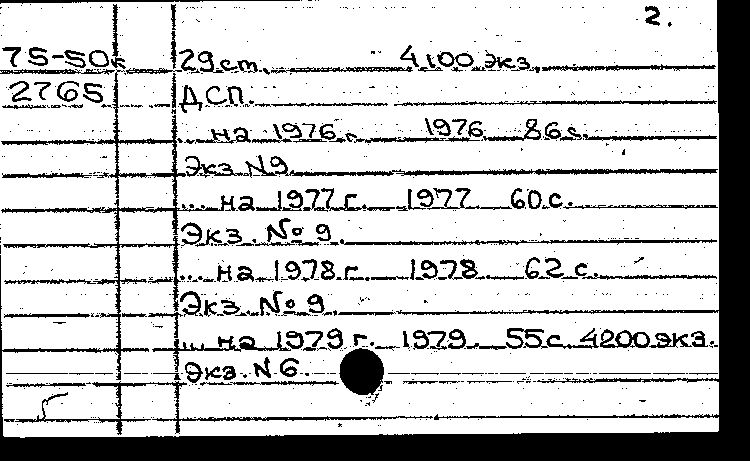 2.
75-50с 29 cm. 4100 экз.
2765 ДСП.
... на 1976 г. 1976 86 с.
Экз N9.
... на 1977 г. 1977 60 с.
Экз. № 9.
... на 1978 г. 1978 62 с.
Экз. № 9.
... на 1979 г. 1979. 55 с. 4200 экз.
Экз. N 6.